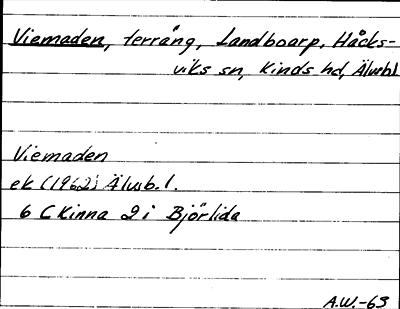 Viemaden, terräng, Landboarp, Håcks-
viks sn, Kinds hd, Älvsb.l
Viemaden
ek (1962) Älvsb.l.
6 C Kinna 2 i Björlida
A.W.-63